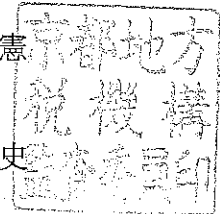 憲
史
京都地方
税機構
監査委員印